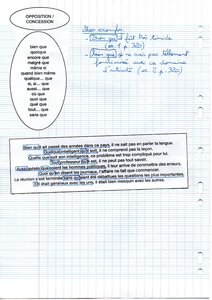 OPPOSITION /
CONCESSION
bien que
quoique
encore que
malgré que
même si
quand bien même
quelque... que
si, si... que
aussi... que
où que
quoi que
quel que
tout... que
sans que
Mes exemples
Bien qu'il fait très timide
(ex. 1 p. 320)
Bien que je ne sois pas
(ex. 2 p. 320)
Bien qu'il ait passé des années dans ce pays, il ne sait pas en parler la langue.
Quelque intelligent qu'il soit, il ne comprend pas la leçon.
Quelle que soit son intelligence, ce problème est trop compliqué pour lui.
Tout professeur qu'il est, il ne peut pas tout savoir.
Aussi avisés que soient les hommes politiques, il leur arrive de commettre des erreurs.
Quoi qu'en disent les journaux, l'affaire ne fait que commencer.
La réunion s'est terminée sans qu'aient été débattues les questions les plus importantes.
S'il était généreux avec les uns, il était bien mesquin avec les autres.